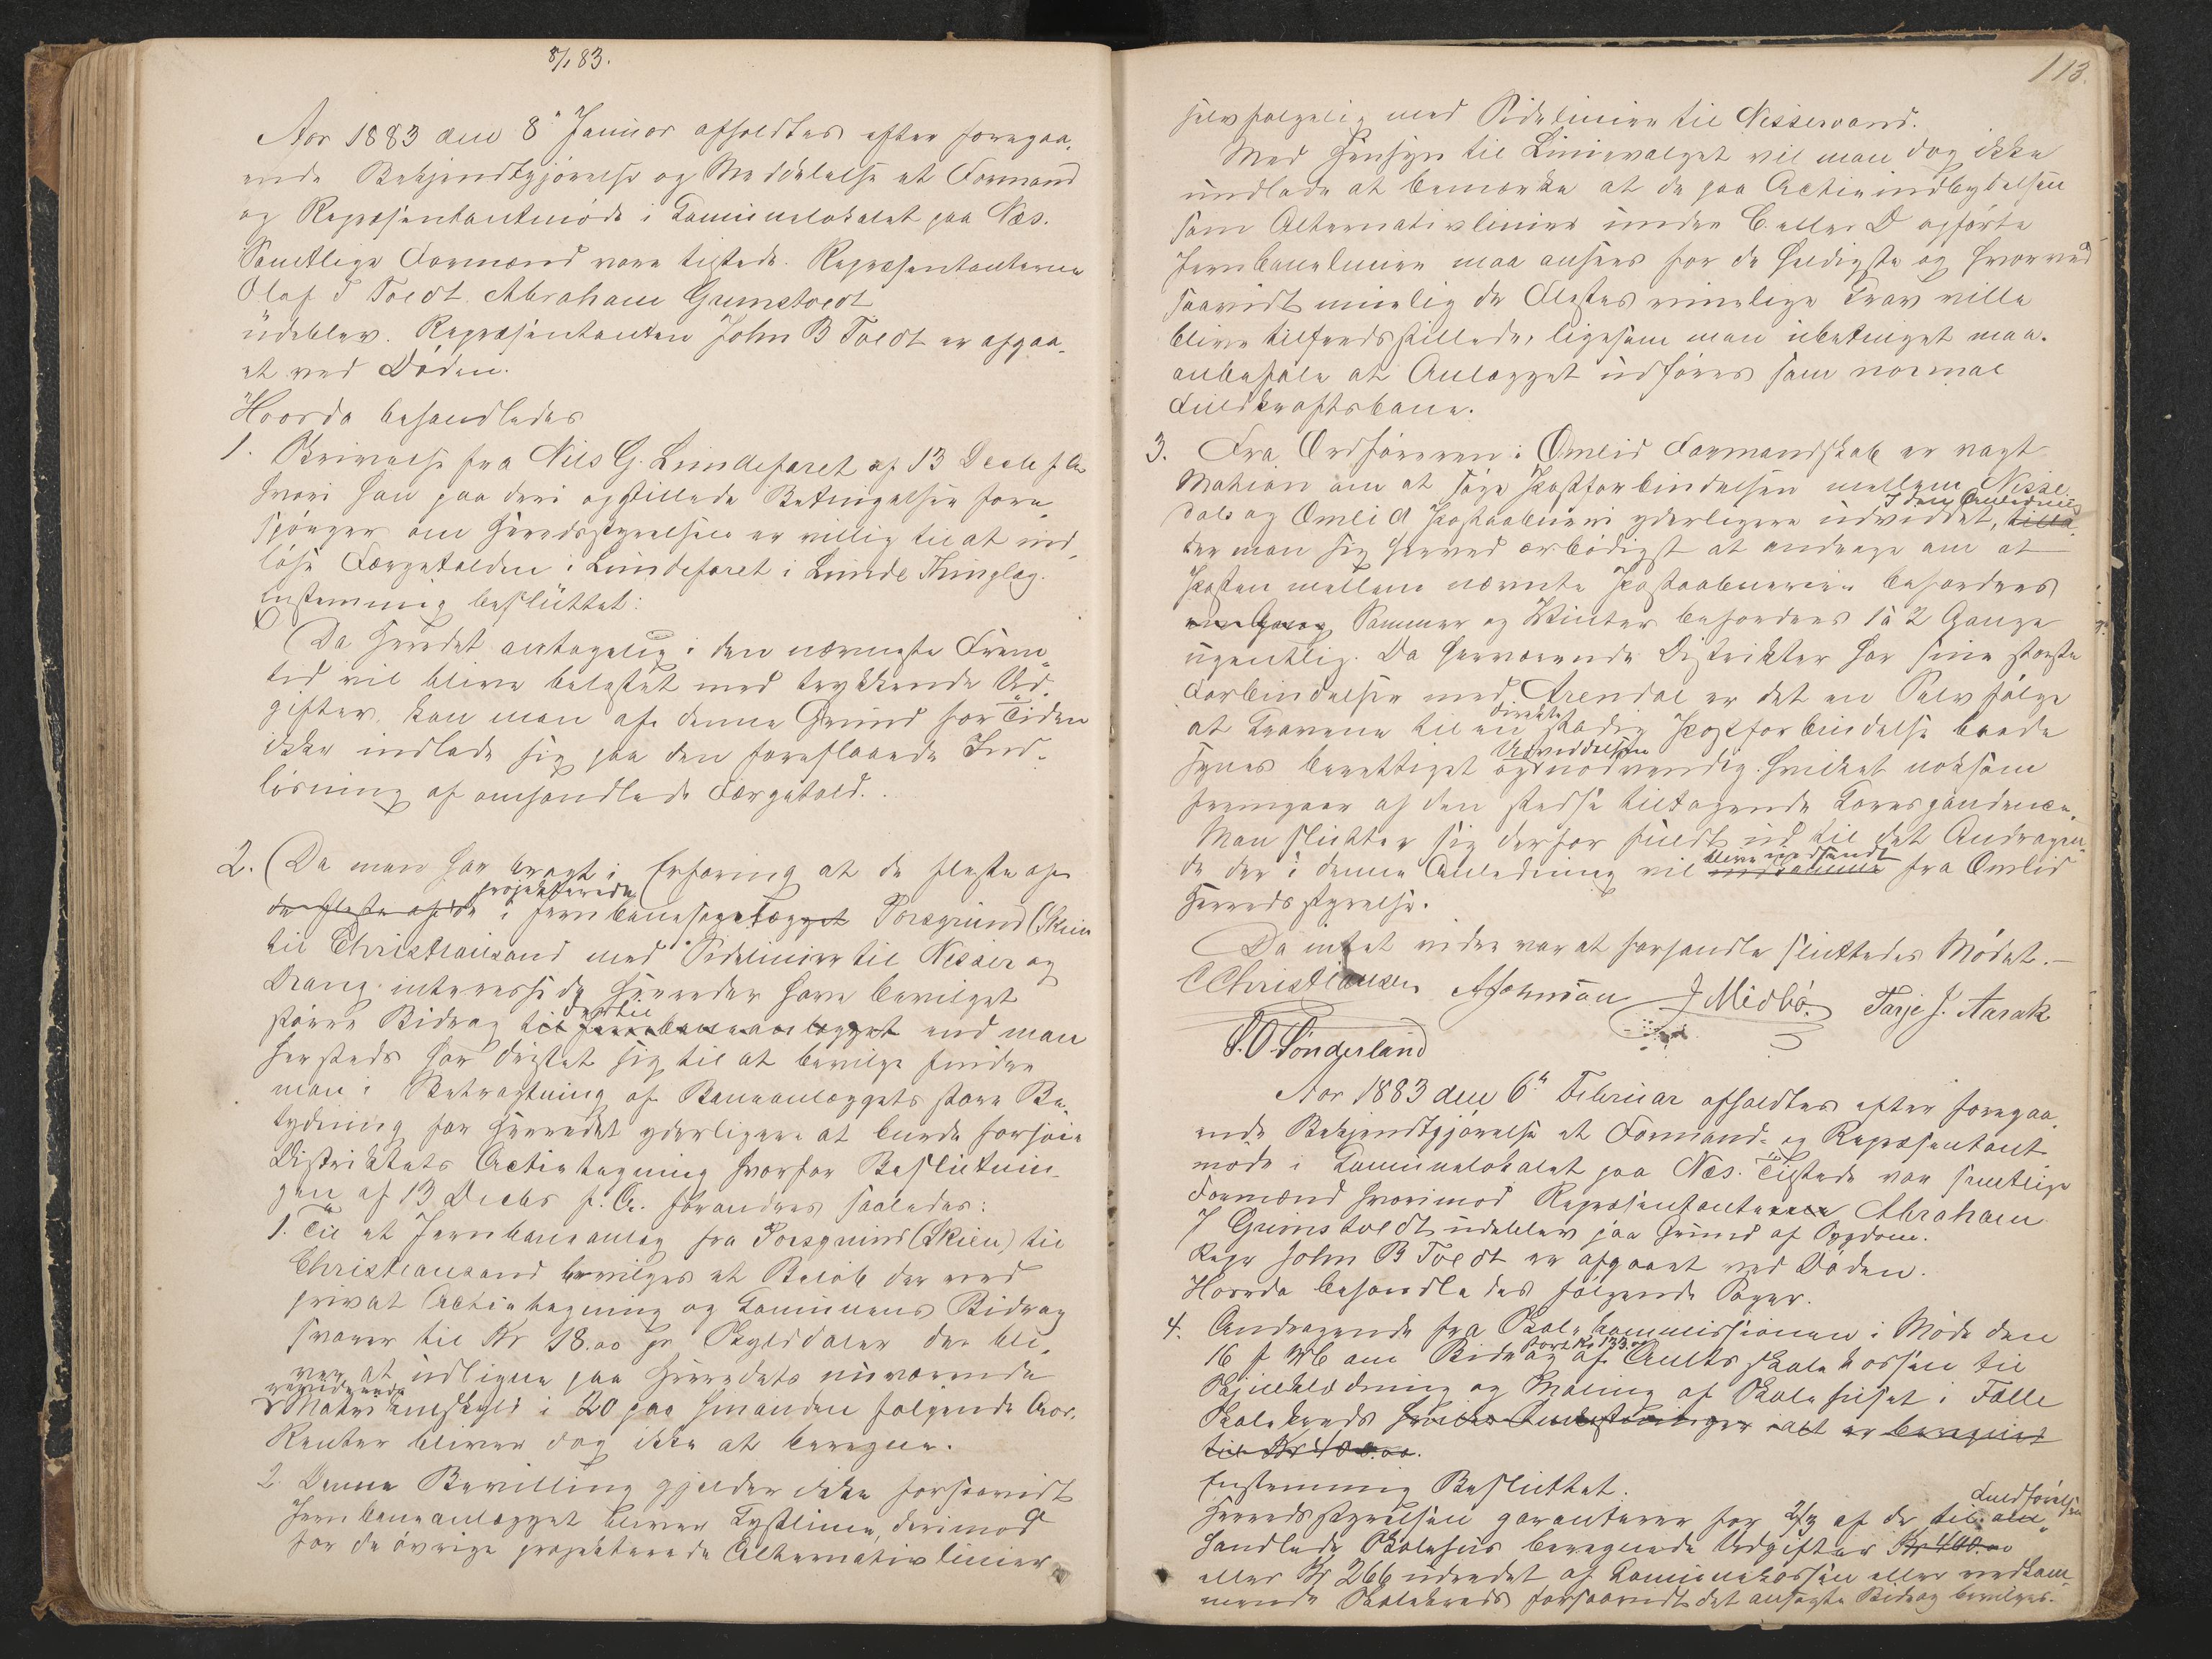 8/1 83.
Aar 1883 den 8de Januar afholdtes efter foregaa-
ende Bekjendtgjørelse og Meddelelse et Formand
og Repræsentantmøde i Communelokalet paa Næs.
Samtlige Formænd vare tilstede. Repræsentanterne
Olaf T Tvedt Abraham Grimstvedt
udeblev. Repræsentanten John B Tvedt er afgaa-
et ved Døden.
Hvorda behandledes
1. Skrivelse fra Nils G. Lundefaret af 13 Decbr f A
hvori han paa deri opstillede Betingelser fore-
spørger om Heredsstyrelsen er villig til at ind-
løse Færgetolden i Lundefaret i Lunde Thinglag.
Enstemmig besluttet:
Da Heredet antagelig i den nærmeste Frem-
tid vil blive belastet med trykkende Ud-
gifter, kan man af denne Grund for Tiden
ikke indlade sig paa den foreslaaede Ind-
løsning af omhandlede Færgetold.
2. Da man har bragt i Erfaring at de fleste af
projekterede
de fleste af de i Jernbaneanlægget Porsgrund (Skien
til Christiansand med Sidelinier til Nisser og
Drang interesserede Hereder have bevilget
dertil
større Bidrag til Jernbaneanlægget end man
hersteds har dristet sig til at bevilge finder
man i Betragtning af Baneanlæggets store Be-
tydning for Heredet yderligere at burde forhøie
Distriktets Actietegning hvorfor Beslutnin-
gen af 13 Decbr f. A. forandres saaledes:
1. Til et Jernbaneanlæg fra Porsgrund (Skien) til
Christiansand bevilges et Beløb der ved
privat Actietegning og Communens Bidrag
svarer til Kr 18.00 pr Skylddaler der bli-
ver at udligne paa Heredets nuværende
reviderede
Matrikulskyld i 20 paa hinanden følgende Aar.
Renter bliver dog ikke at beregne.
2. Denne Bevilling gjelder ikke forsaavidt
Jernbaneanlægget bliver Kystlinie, derimod
for de øvrige projekterede Alternativlinier
113.
selvfølgelig med Sidelinien til Nisservand.
Med Hensyn til Linievalget vil man dog ikke
undlade at bemærke at de paa Actieindbydelsen
som Alternativlinier under C. eller D opførte
Jernbanelinier maa ansees for de heldigste og hvorved
saavidt mulig de Flestes rimelige Krav ville
blive tilfredsstillede, ligesom man ubetinget maa
anbefale at Anlægget udføres som normal
Fuldkraftsbane.
3. Fra Ordføreren i Omlid Formandskab er vagt
Motion om at søge Postforbindelsen mellem Nisse-
I den Anledning
dal og Omlid Postaabneri yderligere udvidet, tilla-
der man sig herved ærbødigst at andrage om at
Posten mellem nævnte Postaabnerier befordres
en Gang Sommer og Vinter befordres 1 à 2 Gange
ugentlig. Da herværende Distrikter har sine største
Forbindelser med Arendal er det en Selvfølge
direkte
at Kravene til en stadig Postforbindelse baade
Udvidelsen
synes berettiget og nødvendig. hvilket noksom
fremgaar af den stedse tiltagende Corespondence.
Man slutter sig derfor fuldt ud til det Andragen-
blive indsendt
de der i denne Anledning vil indkomme fra Omlid
Heredsstyrelse.
Da intet videre var at forhandle sluttedes Mødet.
C Christiansen A Johnsen J Midbø. Tarje J. Aarak
S. O. Sønderland
Aar 1883 den 6te Februar afholdtes efter foregaa-
ende Bekjendtgjørelse et Formand- og Repræsentant-
møde i Communelokalet paa Næs. Tilstede var samtlige
Formænd hvorimod Repræsentanterne Abraham
J Grimstvedt udeblev paa Grund af Sygdom.
Repr John B Tvedt er afgaaet ved Døden.
Hvorda behandledes følgende Sager.
4. Andragende fra Skolekommissionen i Møde den
stort Kr 133.00
16 f Mb om Bidrag af Amtsskolekassen til
Beklædning og Maling af Skolehuset i Felle
Skolekreds hvilke Bekostninger alt er beregnet
til Kr 400.00.
Enstemmig Besluttet.
Fuldførelsen
Heredsstyrelsen garanterer for 2/3 af de til om-
handlede Skolehus beregnede Udgifter Kr 400.00
eller Kr 266 udredet af Communekassen eller vedkom-
mende Skolekreds forsaavidt det ansøgte Bidrag bevilges.